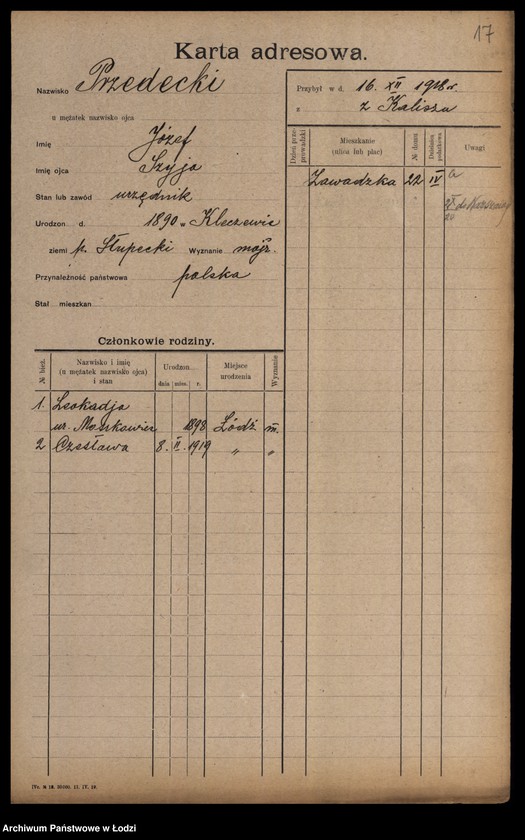 17
Karta adresowa.
Nazwisko Przedecki
u mężatek nazwisko ojca
Imię Józef
Imię ojca Szyja
Stan lub zawód urzędnik
Urodzon d. 1890 w Kleczewie
ziemi p. Słupecki Wyznanie mojż.
Przynależność państwowa polska
Stał mieszkan
Przybył w d. 16. XII 1918 r.
z z Kalisza
Dzień przeprowadzki Mieszkanie (ulica lub plac) № domu Dzielnica podatkowa Uwagi
Zawadzka 22 IV a
20
Członkowie rodziny.
№ bież. Nazwisko i imię (u mężatek nazwisko ojca) i stan Urodzon. dnia mies. r. Miejsce urodzenia Wyznanie
1. Leokadja
ur. Moszkowicz 1898 Łódź m.
2 Czesława 8. II. 1919 " "
Archiwum Państwowe w Łodzi